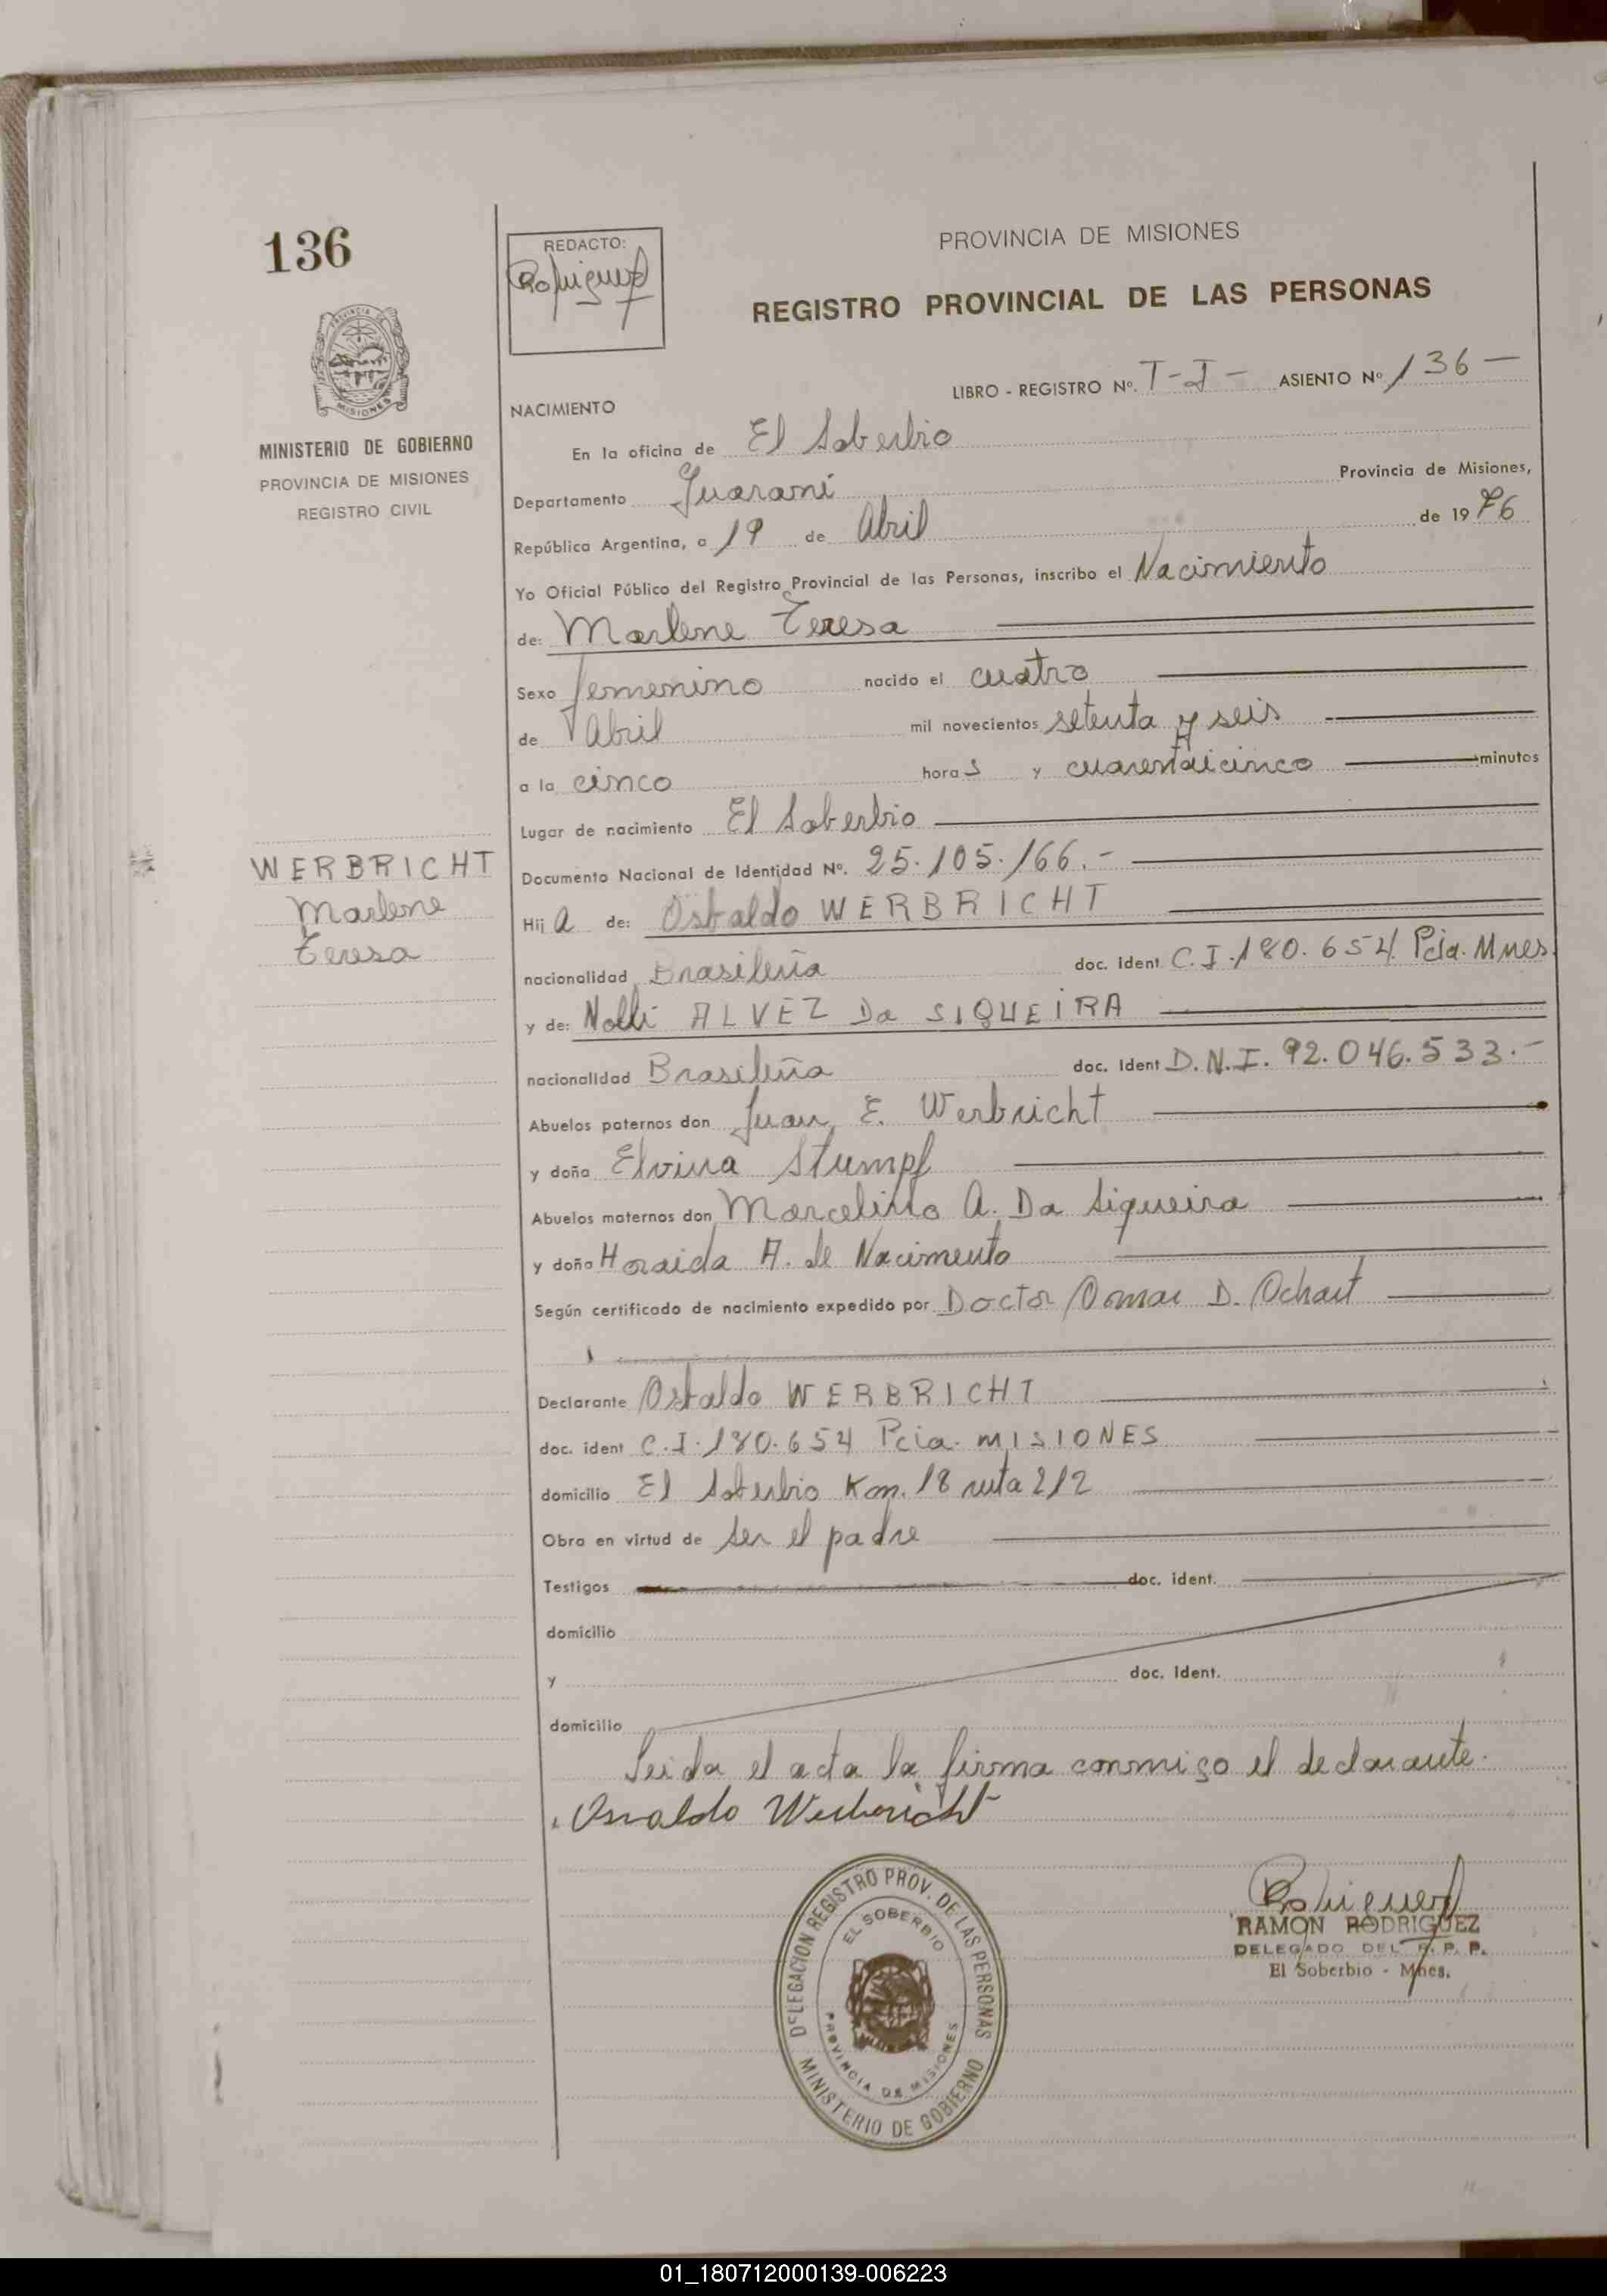 136
REDACTO:
PROVINCIA DE MISIONES
REGISTRO PROVINCIAL DE LAS PERSONAS
LIBRO - REGISTRO Nº. T-I - ASIENTO Nº 136 —
MINISTERIO DE GOBIERNO
PROVINCIA DE MISIONES
REGISTRO CIVIL
NACIMIENTO
En la oficina de El Soberbio
Departamento Guarani Provincia de Misiones,
República Argentina, a 19 de Abril de 1976
Yo Oficial Público del Registro Provincial de las Personas, inscribo el Nacimiento
de: Marlene Teresa
Sexo femenino nacido el cuatro
de Abril mil novecientos setenta y seis
a la cinco horas y cuarentaicinco minutos
Lugar de nacimiento El Soberbio
WERBRICHT
Marlene
Teresa
Documento Nacional de Identidad Nº. 25.105.166.-
Hija de: Osbaldo WERBRICHT
nacionalidad Brasileña doc. ident C.I.180.654 Pcia. Mnes.
y de: Nolli ALVEZ Da SIQUEIRA
nacionalidad Brasileña doc. Ident D.N.I. 92.046.533.-
Abuelos paternos don Juan E. Werbricht
y doña Elvina Stumpf
Abuelos maternos don Marcelino A. Da Siqueira
y doña Horaida A. de Nacimento
Según certificado de nacimiento expedido por Doctor Omar D. Ochart
Declarante Osbaldo WERBRICHT
doc. ident C.I.180.654 Pcia. MISIONES
domicilio El Soberbio Km. 18 ruta 212
Obra en virtud de ser el padre
Testigos doc. ident.
domicilio
y doc. Ident.
domicilio
Leida el acta la firma conmigo el declarante.
Osvaldo Werbricht
DELEGACION REGISTRO PROV. DE LAS PERSONAS
EL SOBERBIO
PROVINCIA DE MISIONES
MINISTERIO DE GOBIERNO
RAMON RODRIGUEZ
DELEGADO DEL R. P. P.
El Soberbio - Mnes.
01_180712000139-006223